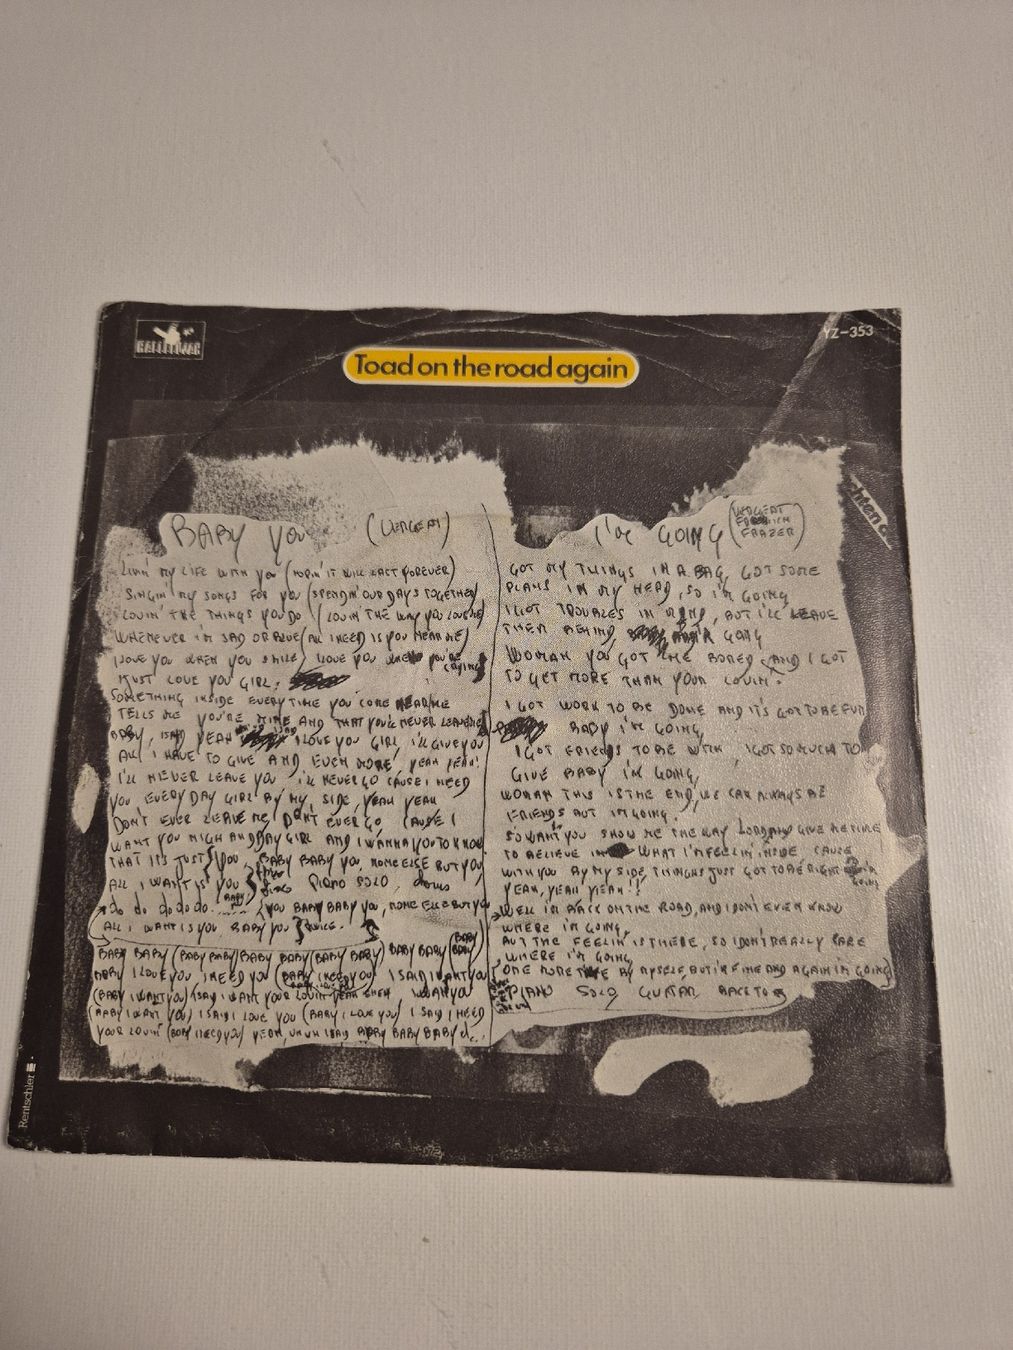 HALLELUJAH
YZ-353
Toad on the road again
BABY YOU (VERGEAT)
LIVIN' MY LIFE WITH YOU (HOPIN' IT WILL LAST FOREVER)
SINGIN' MY SONGS FOR YOU (SPENDIN' OUR DAYS TOGETHER)
LOVIN' THE THINGS YOU DO (LOVIN' THE WAY YOU LOVE ME)
WHENEVER I'M SAD OR BLUE (ALL I NEED IS YOU NEAR ME)
I LOVE YOU WHEN YOU SMILE, I LOVE YOU WHEN YOU'RE CRYING
I JUST LOVE YOU GIRL,
SOMETHING INSIDE EVERYTIME YOU COME NEAR ME
TELLS ME YOU'RE MINE AND THAT YOU'LL NEVER LEAVE ME
BABY, I SAID YEAH I LOVE YOU GIRL, I'LL GIVE YOU
ALL I HAVE TO GIVE AND EVEN MORE, YEAH YEAH!
I'LL NEVER LEAVE YOU I'LL NEVER GO CAUSE I NEED
YOU EVERY DAY GIRL BY MY SIDE, YEAH YEAH
DON'T EVER LEAVE ME, DON'T EVER GO CAUSE I
WANT YOU NIGH AND DAY GIRL AND I WANNA YOU TO KNOW
THAT IT'S JUST YOU, BABY BABY YOU, NONE ELSE BUT YOU
ALL I WANT IS YOU PIANO SOLO, drums
do do do do do YOU BABY BABY YOU, NONE ELSE BUT YOU
ALL I WANT IS YOU, BABY YOU TWICE.
BABY BABY (BABY BABY) BABY BABY (BABY BABY) BABY BABY (BABY BABY)
BABY I LOVE YOU, I NEED YOU (BABY I NEED YOU) I SAID I WANT YOU
(BABY I WANT YOU) I SAID I WANT YOUR LOVIN' YEAH WHEN I WANT YOU
(BABY I WANT YOU) I SAID I LOVE YOU (BABY I LOVE YOU) I SAID I NEED
YOUR LOVIN' (BABY I NEED YOU) YEAH, UH UH I SAID BABY BABY BABY
I'M GOING (VERGEAT FROEHLICH FRAZER)
GOT MY THINGS IN A BAG, GOT SOME
PLANS IN MY HEAD, SO I'M GOING
I GOT TROUBLES IN MIND, BUT I'LL LEAVE
THEM BEHIND I'M GOING
WOMAN YOU GOT ME BORED, AND I GOT
TO GET MORE THAN YOUR LOVIN'.
I GOT WORK TO BE DONE AND IT'S GOT TO BE FUN
BABY I'M GOING,
I GOT FRIENDS TO BE WITH, I GOT SO MUCH TO
GIVE BABY I'M GOING,
WOMAN THIS IS THE END, WE CAN ALWAYS BE
FRIENDS BUT I'M GOING.
SO WANT YOU SHOW ME THE WAY LORD AND GIVE ME TIME
TO BELIEVE IN WHAT I'M FEELIN' INSIDE CAUSE
WITH YOU BY MY SIDE, THINGS JUST GOT TO BE RIGHT I'M GOING
YEAH, YEAH YEAH!!
WELL I'M BACK ON THE ROAD, AND I DON'T EVEN KNOW
WHERE I'M GOING,
BUT THE FEELIN' IS THERE, SO I DON'T REALLY CARE
WHERE I'M GOING,
ONE MORE TIME BY MYSELF, BUT I'M FINE AND AGAIN I'M GOING
PIANO SOLO GUITAR BACK TO
Rentschler